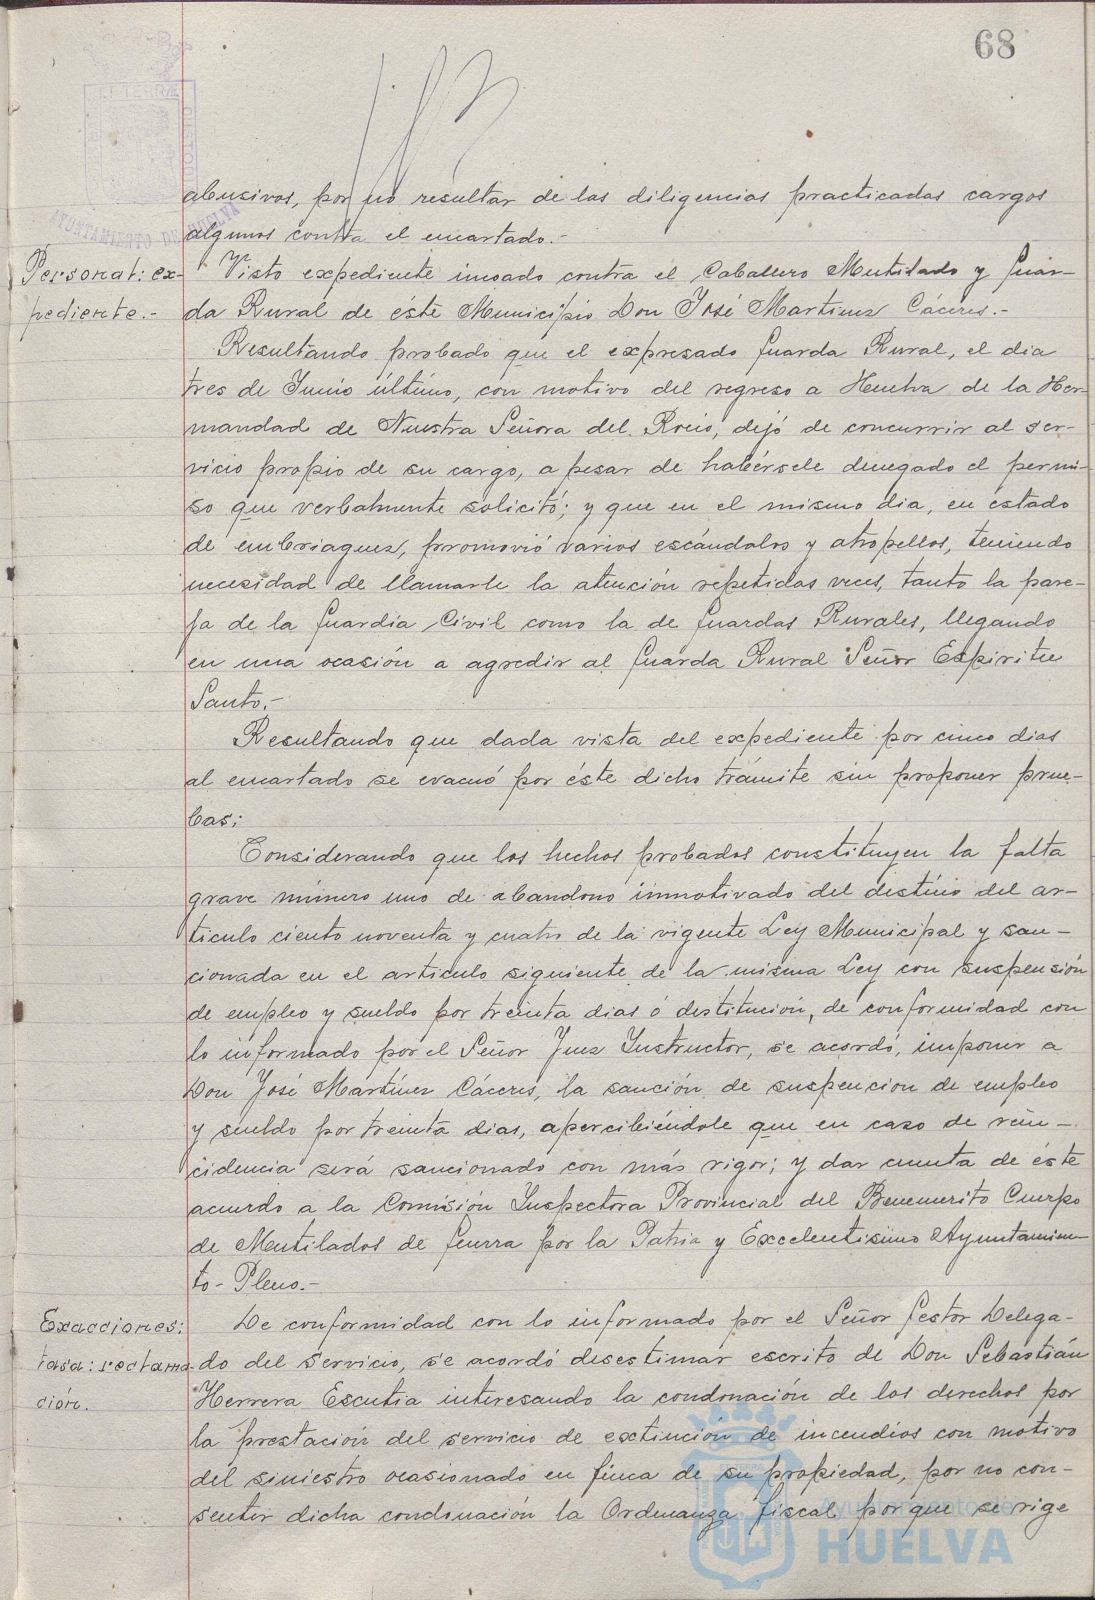 68
abusivos, por no resultar de las diligencias practicadas cargos
algunos contra el encartado.-
Personal: ex-
pediente.-
Visto expediente incoado contra el Caballero Mutilado y Guar-
da Rural de éste Municipio Don José Martinez Cáceres.-
Resultando probado que el expresado Guarda Rural, el dia
tres de Junio último, con motivo del regreso a Huelva de la Her-
mandad de Nuestra Señora del Rocio, dejó de concurrir al ser-
vicio propio de su cargo, a pesar de habérsele denegado el permi-
so que verbalmente solicitó; y que en el mismo dia, en estado
de embriaguez, promovió varios escándalos y atropellos, teniendo
necesidad de llamarle la atención repetidas veces, tanto la pare-
ja de la Guardia Civil como la de Guardas Rurales, llegando
en una ocasión a agredir al Guarda Rural Señor Espiritu
Santo.-
Resultando que dada vista del expediente por cinco dias
al encartado se evacuó por éste dicho trámite sin proponer prue-
bas;
Considerando que los hechos probados constituyen la falta
grave número uno de abandono inmotivado del destino del ar-
ticulo ciento noventa y cuatro de la vigente Ley Municipal y san-
cionada en el articulo siguiente de la misma Ley con suspensión
de empleo y sueldo por treinta dias ó destitución, de conformidad con
lo informado por el Señor Juez Instructor, se acordó, imponer a
Don José Martínez Cáceres, la sanción de suspencion de empleo
y sueldo por treinta dias, apercibiéndole que en caso de rein-
cidencia será sancionado con más rigor; y dar cuenta de éste
acuerdo a la Comisión Inspectora Provincial del Benemerito Cuerpo
de Mutilados de Guerra por la Patria y Excelentisimo Ayuntamien-
to-Pleno.-
Exacciones:
tasa: reclama-
ción.
De conformidad con lo informado por el Señor Gestor Delega-
do del servicio, se acordó desestimar escrito de Don Sebastián
Herrera Escutia interesando la condonación de los derechos por
la prestación del servicio de extinción de incendios con motivo
del siniestro ocasionado en finca de su propiedad, por no con-
sentir dicha condonación la Ordenanza fiscal porque se rige
AYUNTAMIENTO DE HUELVA
Ayuntamiento de
HUELVA